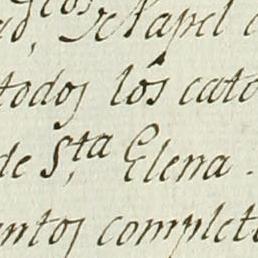 todos los cato
de S.ta Elena.
entos complet